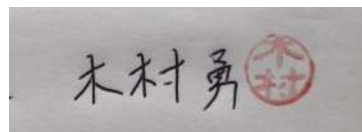 木村勇
木村